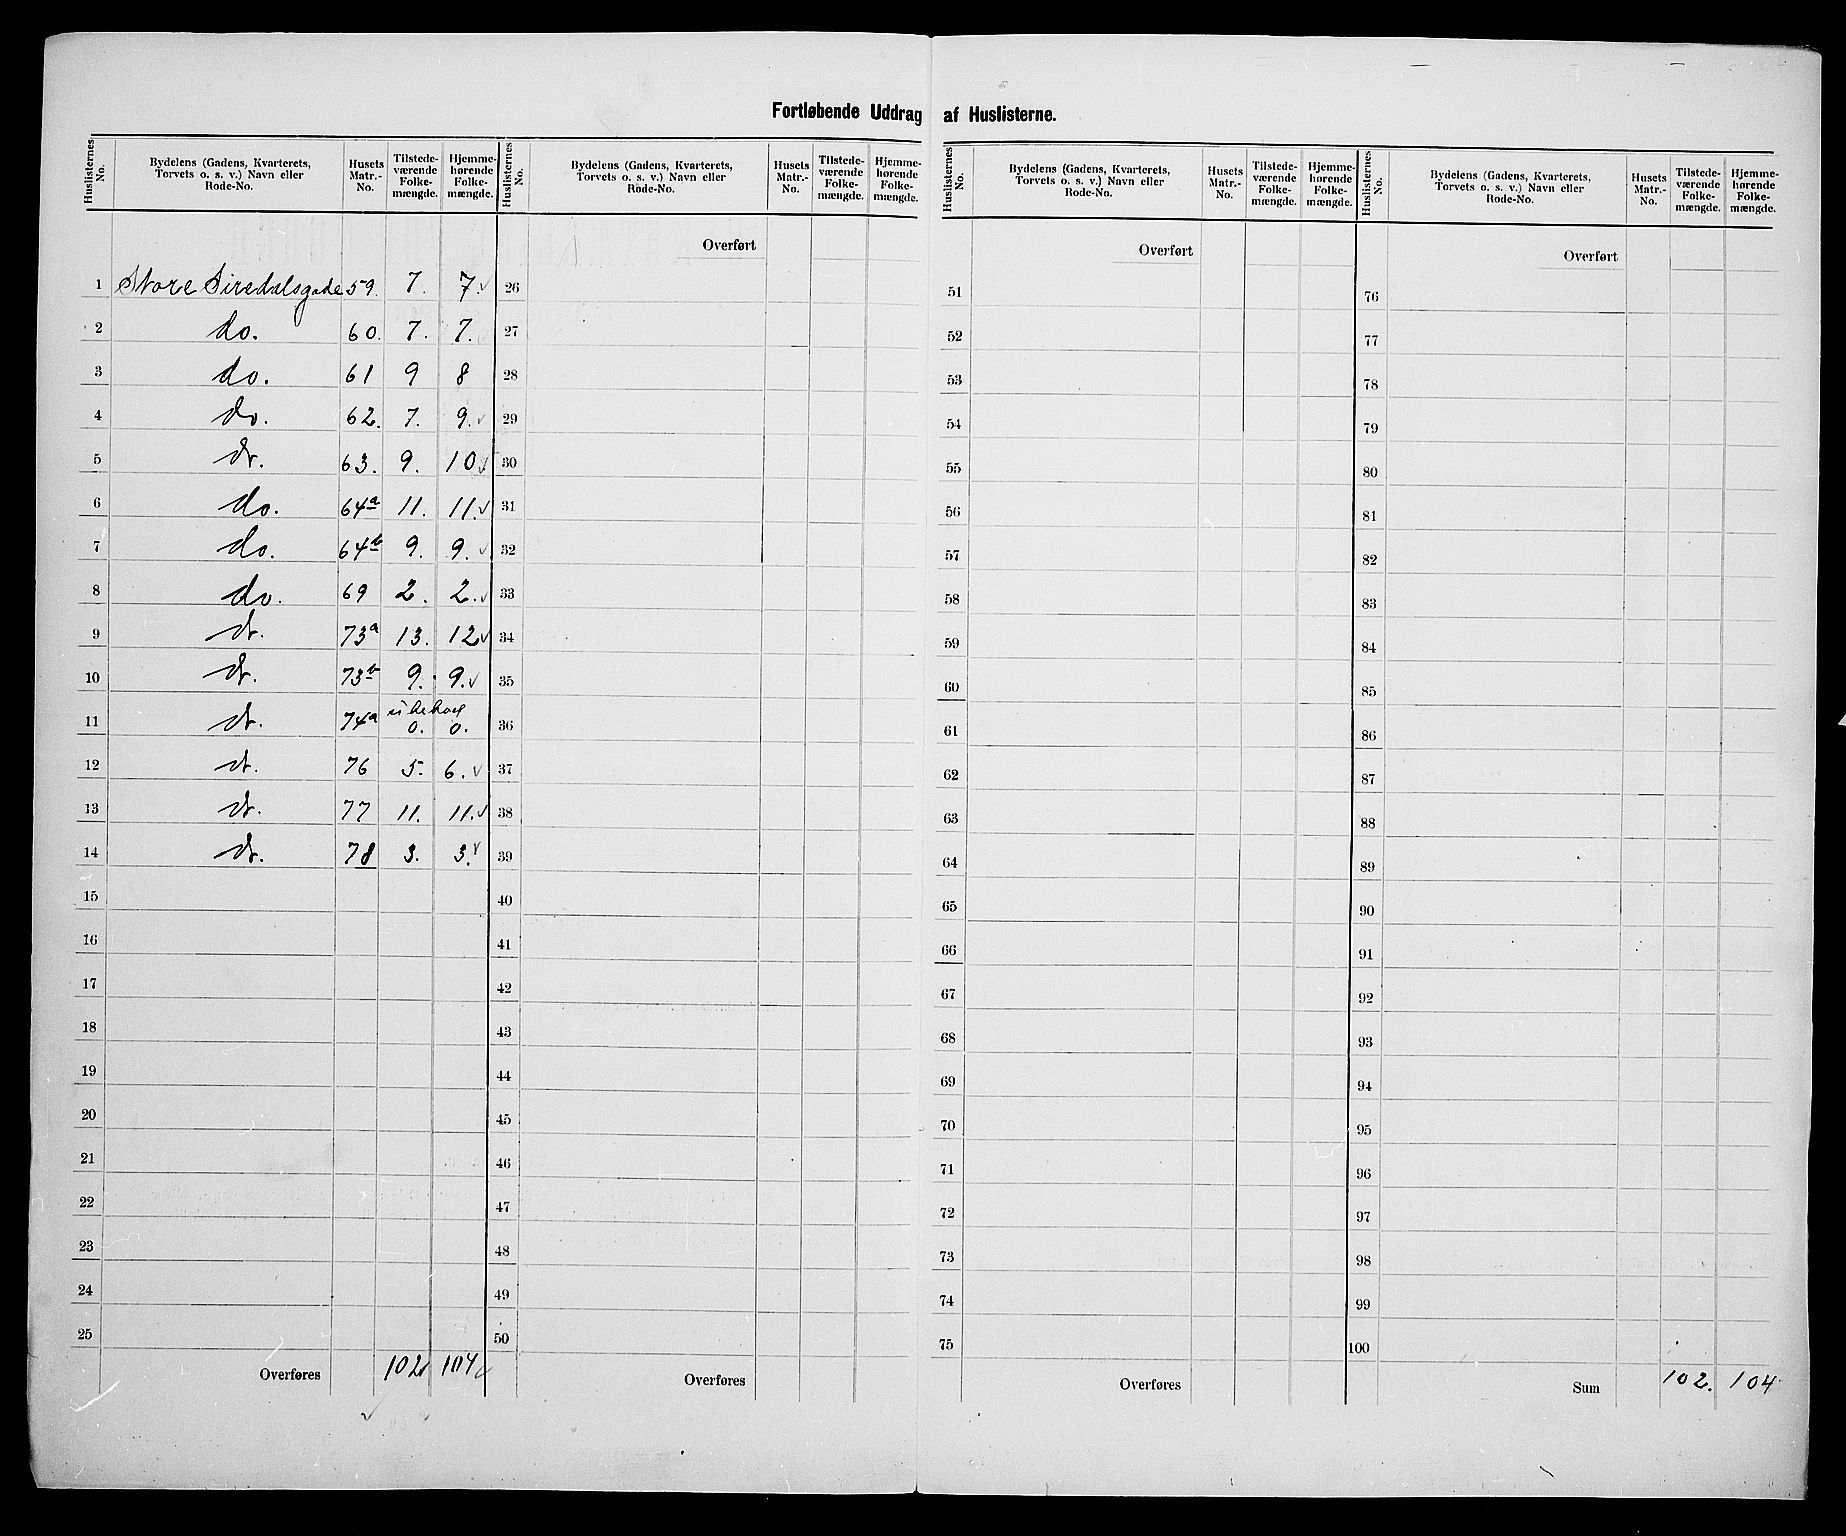 Fortløbende Uddrag af Huslisterne.
Huslisternes No. | Bydelens (Gadens, Kvarterets, Torvets o. s. v.) Navn eller Rode-No. | Husets Matr.-No. | Tilstedeværende Folkemængde. | Hjemmehørende Folkemængde.
1 Store Siredalsgade 59. 7. 7.
2 do. 60. 7. 7.
3 do. 61 9 8
4 do. 62. 7. 9.
5 do. 63. 9. 10
6 do. 64a 11. 11.
7 do. 64b 9. 9.
8 do. 69 2. 2.
9 do. 73a 13. 12
10 do. 73b 9. 9.
11 do. 74a ubeboet 0. 0.
12 do. 76 5. 6.
13 do. 77 11. 11.
14 do. 78 3. 3.
15
16
17
18
19
20
21
22
23
24
25
Overføres 102 104
Huslisternes No. | Bydelens (Gadens, Kvarterets, Torvets o. s. v.) Navn eller Rode-No. | Husets Matr.-No. | Tilstedeværende Folkemængde. | Hjemmehørende Folkemængde.
Overført
26
27
28
29
30
31
32
33
34
35
36
37
38
39
40
41
42
43
44
45
46
47
48
49
50
Overføres
Huslisternes No. | Bydelens (Gadens, Kvarterets, Torvets o. s. v.) Navn eller Rode-No. | Husets Matr.-No. | Tilstedeværende Folkemængde. | Hjemmehørende Folkemængde.
Overført
51
52
53
54
55
56
57
58
59
60
61
62
63
64
65
66
67
68
69
70
71
72
73
74
75
Overføres
Huslisternes No. | Bydelens (Gadens, Kvarterets, Torvets o. s. v.) Navn eller Rode-No. | Husets Matr.-No. | Tilstedeværende Folkemængde. | Hjemmehørende Folkemængde.
Overført
76
77
78
79
80
81
82
83
84
85
86
87
88
89
90
91
92
93
94
95
96
97
98
99
100
Sum 102. 104